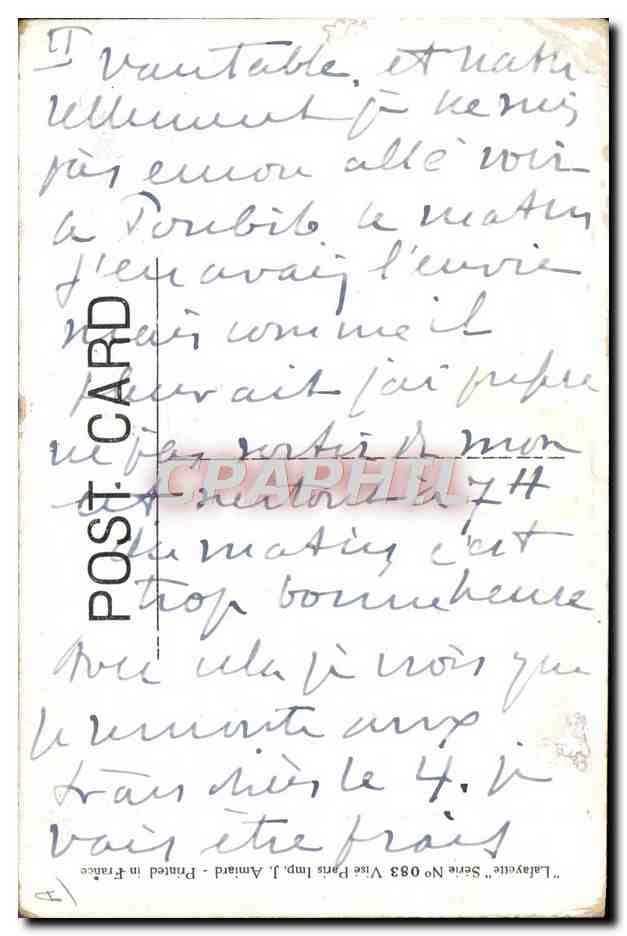 II
vantable, et natu-
rellement je ne suis
pas encore allé voir
le Toubib ce matin
j'en avais l'envie
mais comme il
pleuvait j'ai préféré
ne pas sortir de mon
lit surtout à 7H
du matin c'est
trop bonne heure
Avec cela je crois que
je remonte aux
tranchées le 4. je
vais être frais
POST CARD
CPARAMA
"Lafayette" Série No 083 Visé Paris Imp. J. Amiard - Printed in France